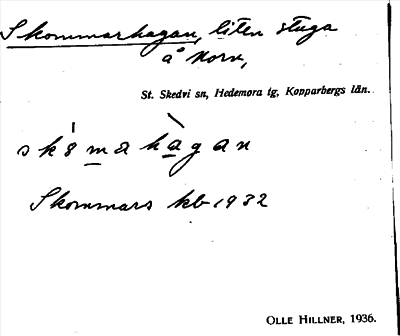 Skommarhagan, liten stuga
å Norn,
St. Skedvi sn, Hedemora tg, Kopparbergs län.
skomahagan
Skommars kb 1932
OLLE HILLNER, 1936.